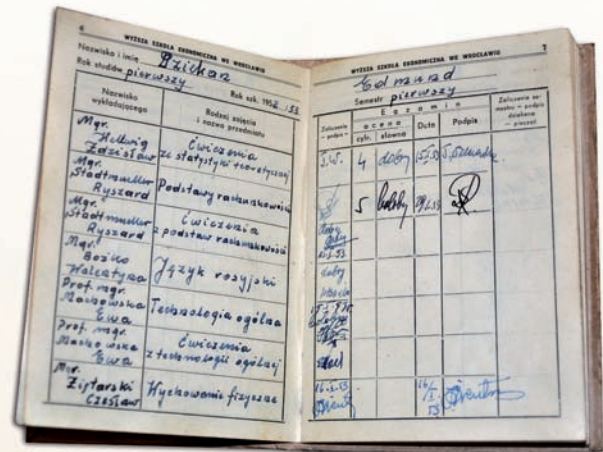 6
WYŻSZA SZKOŁA EKONOMICZNA WE WROCŁAWIU
Nazwisko i imię Dziekan
Rok studiów pierwszy Rok szk. 1952/53
Nazwisko wykładającego
Rodzaj zajęcia i nazwa przedmiotu
Mgr. Hellwig Zdzisław
Ćwiczenia ze statystyki teoretycznej
Mgr. Stadtmueller Ryszard
Podstawy rachunkowości
Mgr. Stadtmueller Ryszard
Ćwiczenia z podstaw rachunkowości
Mgr. Bożko Walentyna
Język rosyjski
Prof. mgr. Machowska Ewa
Technologia ogólna
Prof. mgr. Machowska Ewa
Ćwiczenia z technologii ogólnej
Mgr. Ziętarski Czesław
Wychowanie fizyczne
WYŻSZA SZKOŁA EKONOMICZNA WE WROCŁAWIU
7
Edmund
Semestr pierwszy
Zaliczenie – podpis –
Egzamin
ocena
cyfr. słowna
Data
Podpis
Zaliczenie semestru – podpis dziekana – pieczęć
4 dobry
5
dobry
16.I.53
16/I 53